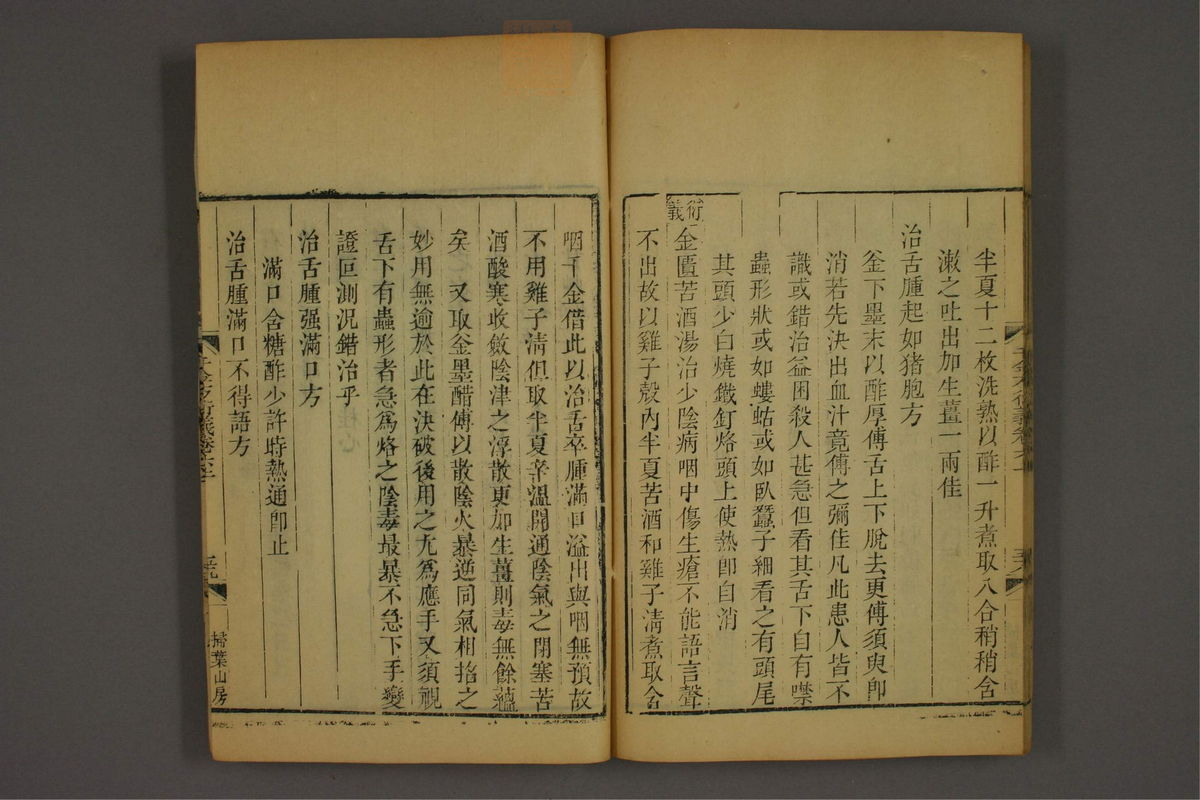 半夏十二枚洗熱以酢一升煮取八合稍稍含
漱之吐出加生薑一兩佳
治舌腫起如猪胞方
釜下墨末以酢厚傅舌上下脫去更傅須臾卽
消若先決出血汁竟傅之彌佳凡此患人皆不
識或錯治益困殺人甚急但看其舌下自有噤
蟲形狀或如螻蛄或如臥蠶子細看之有頭尾
其頭少白燒鐵釘烙頭上使熱卽自消
衍義
金匱苦酒湯治少陰病咽中傷生瘡不能語言聲
不出故以雞子殼內半夏苦酒和雞子淸煮取含
咽千金借此以治舌卒腫滿口溢出與咽無預故
不用雞子淸但取半夏辛溫開通陰氣之閉塞苦
酒酸寒收斂陰津之浮散更加生薑則毒無餘蘊
矣又取釜墨醋傅以散陰火暴逆同氣相掐之
妙用無逾於此在決破後用之尤爲應手又須覘
舌下有蟲形者急爲烙之陰毒最暴不急下手變
證叵測況錯治乎
治舌腫强滿口方
滿口含糖酢少許時熱通卽止
治舌腫滿口不得語方
掃葉山房